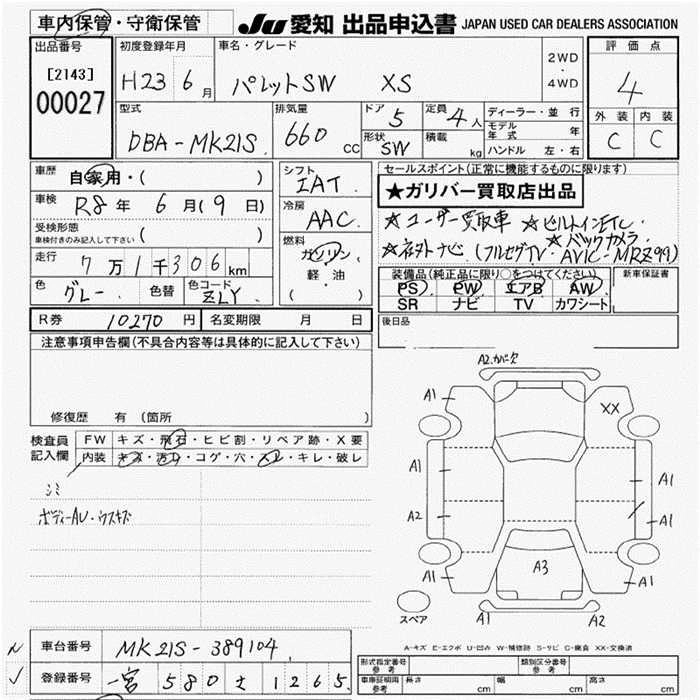 車内保管・守衛保管
JU 愛知 出品申込書 JAPAN USED CAR DEALERS ASSOCIATION
出品番号
[2143]
00027
初度登録年月
H23 6月
車名・グレード
パレットSW XS
2WD
・
4WD
評価点
4
外装 内装
C C
型式
DBA-MK21S
排気量
660 CC
ドア 5
定員 4人
形状 SW
積載 kg
ディーラー・並行
モデル年式 年
ハンドル 左・右
車歴
自家用・( )
車検
R8年 6月(9日)
受検形態
車検付きのみ記入して下さい ( )
走行
7万1千306km
色
グレー
色替
色コード
ZLY
シフト
IAT
冷房
AAC
燃料
ガソリン
軽・油
( )
セールスポイント(正常に機能するものに限ります)
★ガリバー買取店出品
☆ユーザー買取車 ☆ビルトインETC・
☆バックカメラ
(フルセグTV・AVIC-MRZ99)
装備品(純正品に限り○をつけてください)
PS PW エアB AW
SR ナビ TV カワシート
新車保証書
後日品
R券 10270円
名変期限 月 日
注意事項申告欄(不具合内容等は具体的に記入して下さい)
修復歴 有(箇所 )
検査員
記入欄
FW キズ・飛石・ヒビ割・リペア跡・X要
内装 キズ・汚レ・コゲ・穴・スレ・キレ・破レ
シミ
ボディーAU・ウスキズ
A2.カバー欠
A1
XX
A1
A1
A2
A1
A3
A1
A1
スペア
A1
A2
A-キズ E-エクボ U-凹み W-補修跡 S-サビ C-腐食 XX-交換済
車台番号 MK21S-389104
登録番号 一宮 580 さ 1265
形式指定番号
参考
類別区分番号
参考
車庫証明用
参考
長さ cm
幅 cm
高さ cm